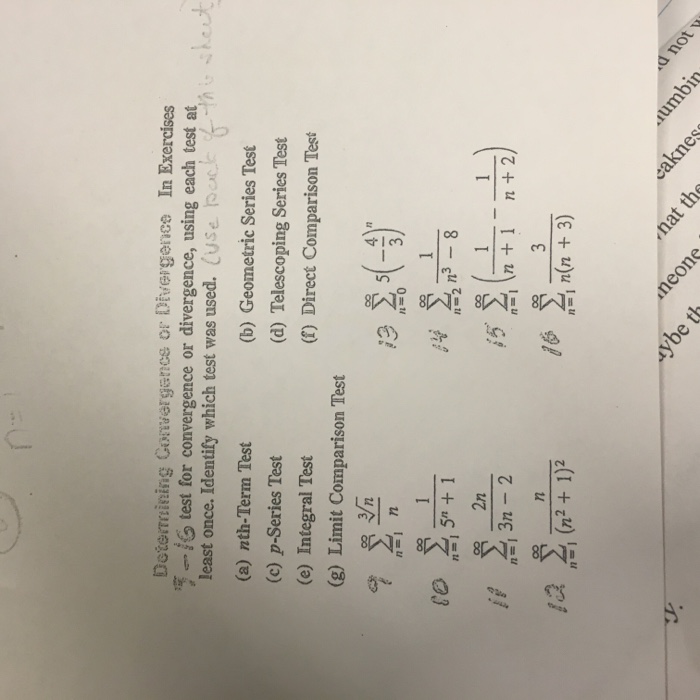 n=1
Determining Convergence or Divergence In Exercises
9-16 test for convergence or divergence, using each test at
least once. Identify which test was used. (use back of this sheet
(a) nth-Term Test (b) Geometric Series Test
(c) p-Series Test (d) Telescoping Series Test
(e) Integral Test (f) Direct Comparison Test
(g) Limit Comparison Test
9 ∞∑n=1 ∛n/n 13 ∞∑n=0 5(-4/3)ⁿ
10 ∞∑n=1 1/(5ⁿ + 1) 14 ∞∑n=2 1/(n³ - 8)
11 ∞∑n=1 2n/(3n - 2) 15 ∞∑n=1 (1/(n + 1) - 1/(n + 2))
12 ∞∑n=1 n/(n² + 1)² 16 ∞∑n=1 3/(n(n + 3))
d not
umbin
eaknes
hat the
meone
ybe th